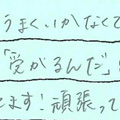 うまくいかなくて
「受かるんだ」
ます！頑張って